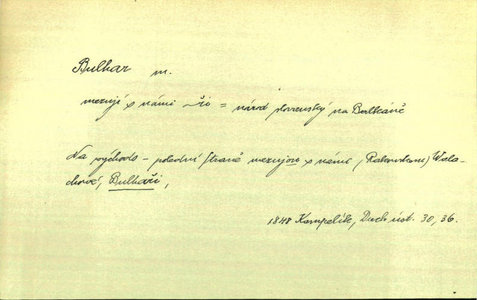 Bulhar m.
mezují s námi -ři = národ slovanský na Balkáně
Na východo-polední straně mezujou s námi (Rakovkous) Wala-
chové, Bulhaři,
1848 Kampelík, Duch úst. 30, 36.